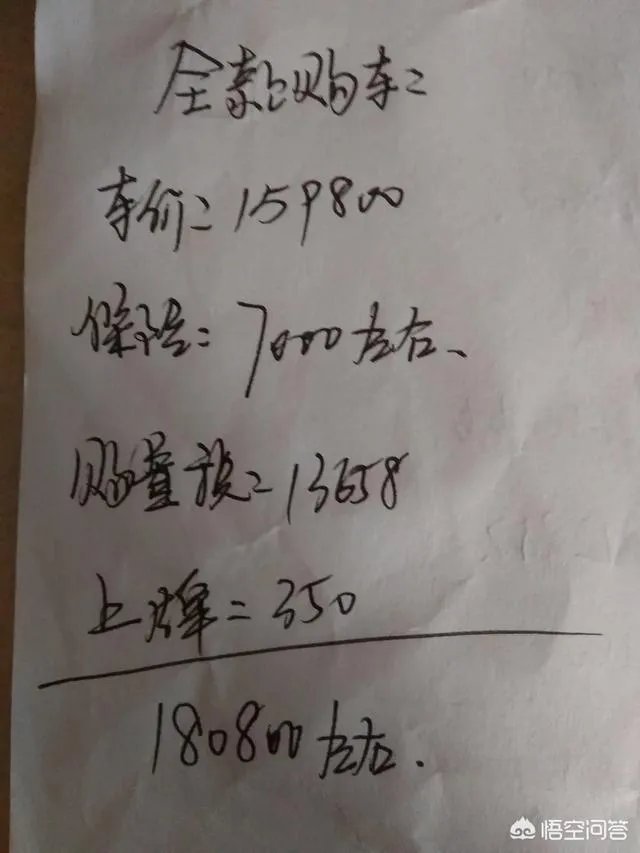 全款购车:
车价: 159800
保险: 7000左右、
购置税: 13658
上牌: 350
180800左右.
悟空问答